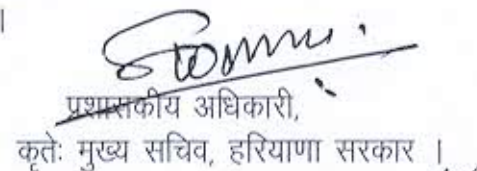 ।
प्रशासकीय अधिकारी,
कृतेः मुख्य सचिव, हरियाणा सरकार ।